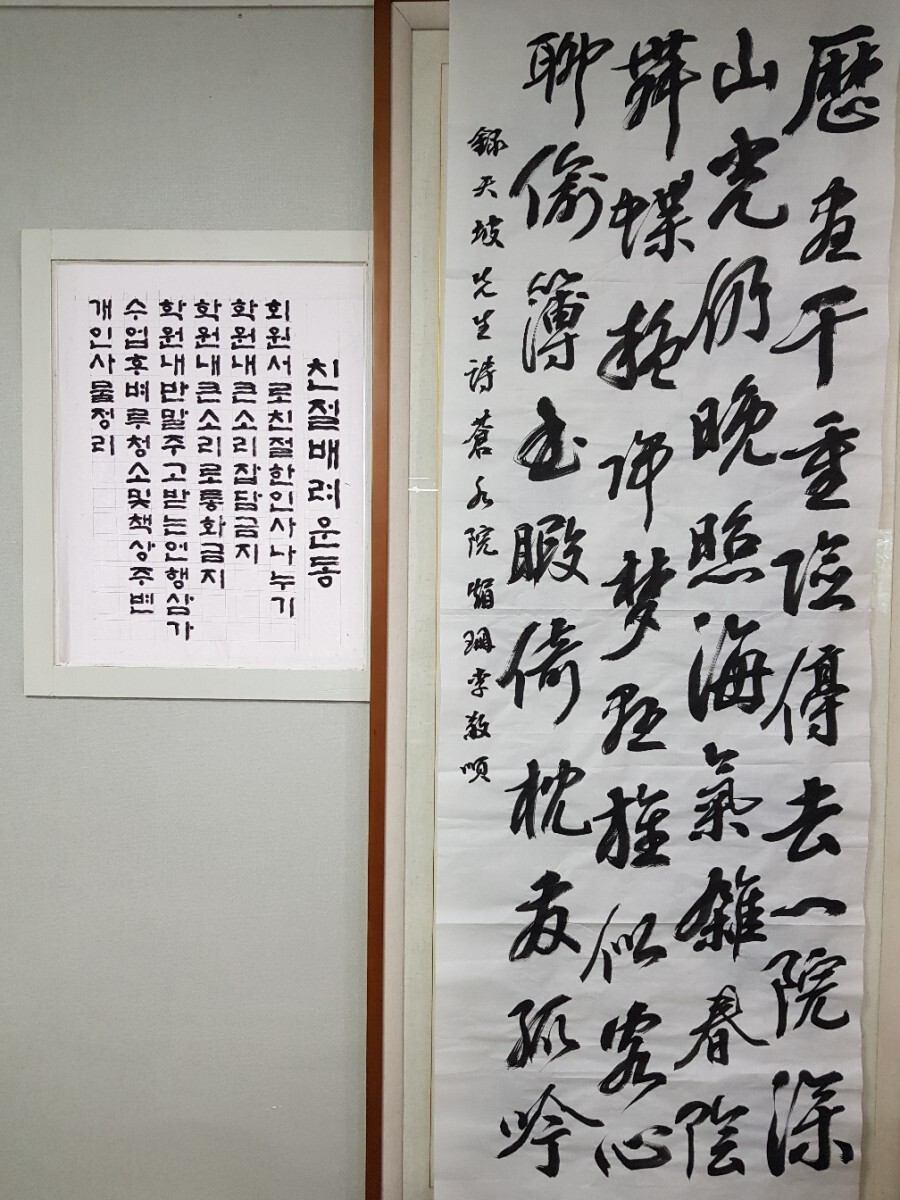 歷盡千重險停去一院深
山光仍晩照海氣雜春陰
舞蝶夢懸旌似客心
聊偸簿書暇倚枕發孤吟
錄天坡先生詩蒼水院李敬順
친절배려운동
회원서로친절한인사나누기
학원내큰소리잡담금지
학원내큰소리로통화금지
학원내반말주고받는언행삼가
수업후벼루청소및책상주변
개인사물정리